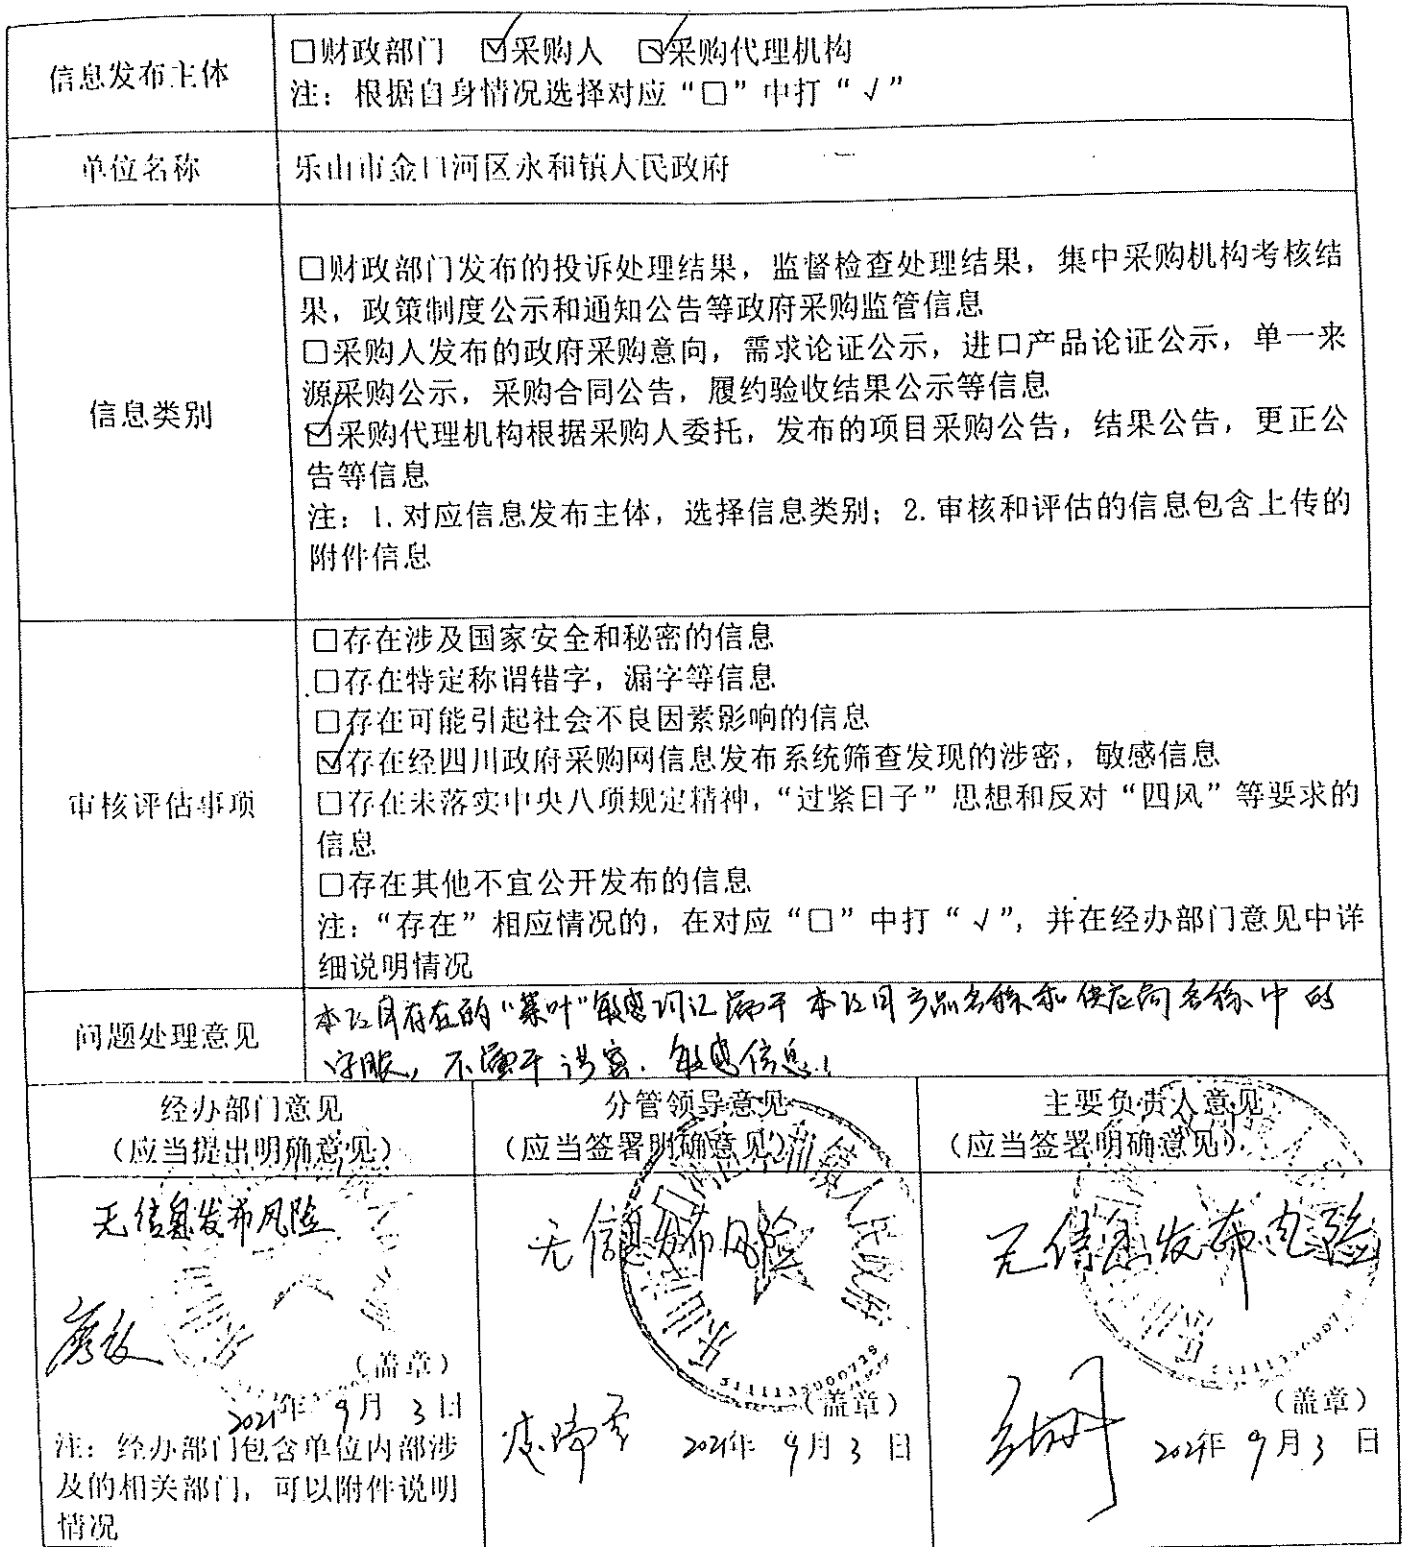 信息发布主体
□财政部门 ☑采购人 ☑采购代理机构
注：根据自身情况选择对应“□”中打“√”
单位名称
乐山市金口河区永和镇人民政府
信息类别
□财政部门发布的投诉处理结果，监督检查处理结果，集中采购机构考核结
果，政策制度公示和通知公告等政府采购监管信息
□采购人发布的政府采购意向，需求论证公示，进口产品论证公示，单一来
源采购公示，采购合同公告，履约验收结果公示等信息
☑采购代理机构根据采购人委托，发布的项目采购公告，结果公告，更正公
告等信息
注：1.对应信息发布主体，选择信息类别；2.审核和评估的信息包含上传的
附件信息
审核评估事项
□存在涉及国家安全和秘密的信息
□存在特定称谓错字，漏字等信息
□存在可能引起社会不良因素影响的信息
☑存在经四川政府采购网信息发布系统筛查发现的涉密，敏感信息
□存在未落实中央八项规定精神，“过紧日子”思想和反对“四风”等要求的
信息
□存在其他不宜公开发布的信息
注：“存在”相应情况的，在对应“□”中打“√”，并在经办部门意见中详
细说明情况
问题处理意见
本项目存在的“茶叶”敏感词汇属于本项目产品名称和供应商名称中的
字眼，不属于涉密．敏感信息！
经办部门意见
（应当提出明确意见）
分管领导意见
（应当签署明确意见）
主要负责人意见
（应当签署明确意见）
无信息发布风险
（盖章）
2021年 9月 3日
注：经办部门包含单位内部涉
及的相关部门，可以附件说明
情况
无信息发布风险
（盖章）
2021年 9月 3日
无信息发布风险
（盖章）
2021年 9月 3日